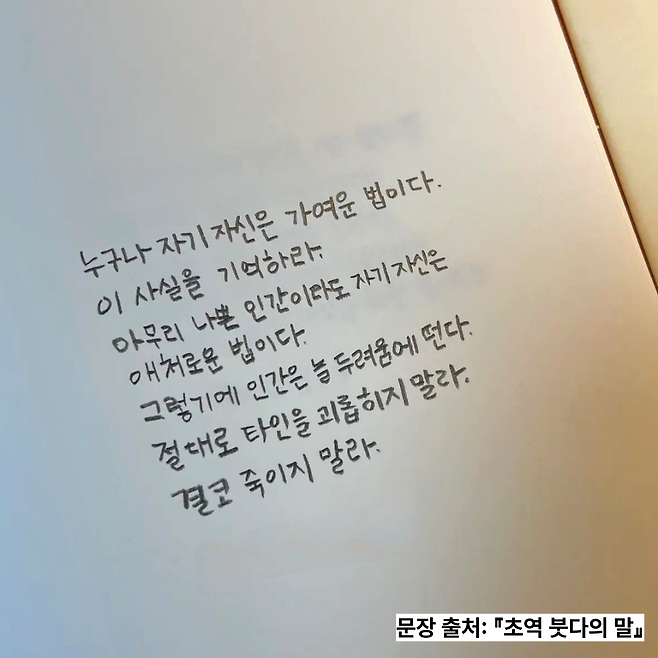 누구나 자기 자신은 가여운 법이다.
이 사실을 기억하라.
아무리 나쁜 인간이라도 자기 자신은
애처로운 법이다.
그렇기에 인간은 늘 두려움에 떤다.
절대로 타인을 괴롭히지 말라.
결코 죽이지 말라.
문장 출처: 『초역 붓다의 말』